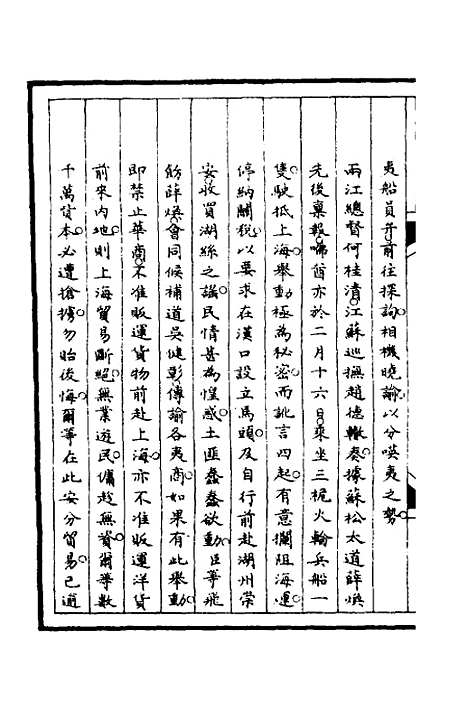 夷船員弁前往探詢相機曉諭以分唊夷之勢
兩江總督何桂清江蘇巡撫趙德轍奏據蘇松太道薛煥
先後稟報㗒酋亦於二月十六日乘坐三桅火輪兵船一
隻駛抵上海舉動極為秘密而訛言四起有意攔阻海運
停納關稅以要求在漢口設立馬頭及自行前赴湖州棠
妄收買湖絲之議民情甚為惶惑土匪蠢蠢欲動臣等飛
飭薛煥會同候補道吳健彰傳諭各夷商如果有此舉動
即禁止華商不准販運貨物前赴上海亦不准販運洋貨
前來內地則上海貿易斷絕無業遊民傭趁無資爾等數
千萬貲本必遭搶擄勿貽後悔爾等在此安分貿易已逾